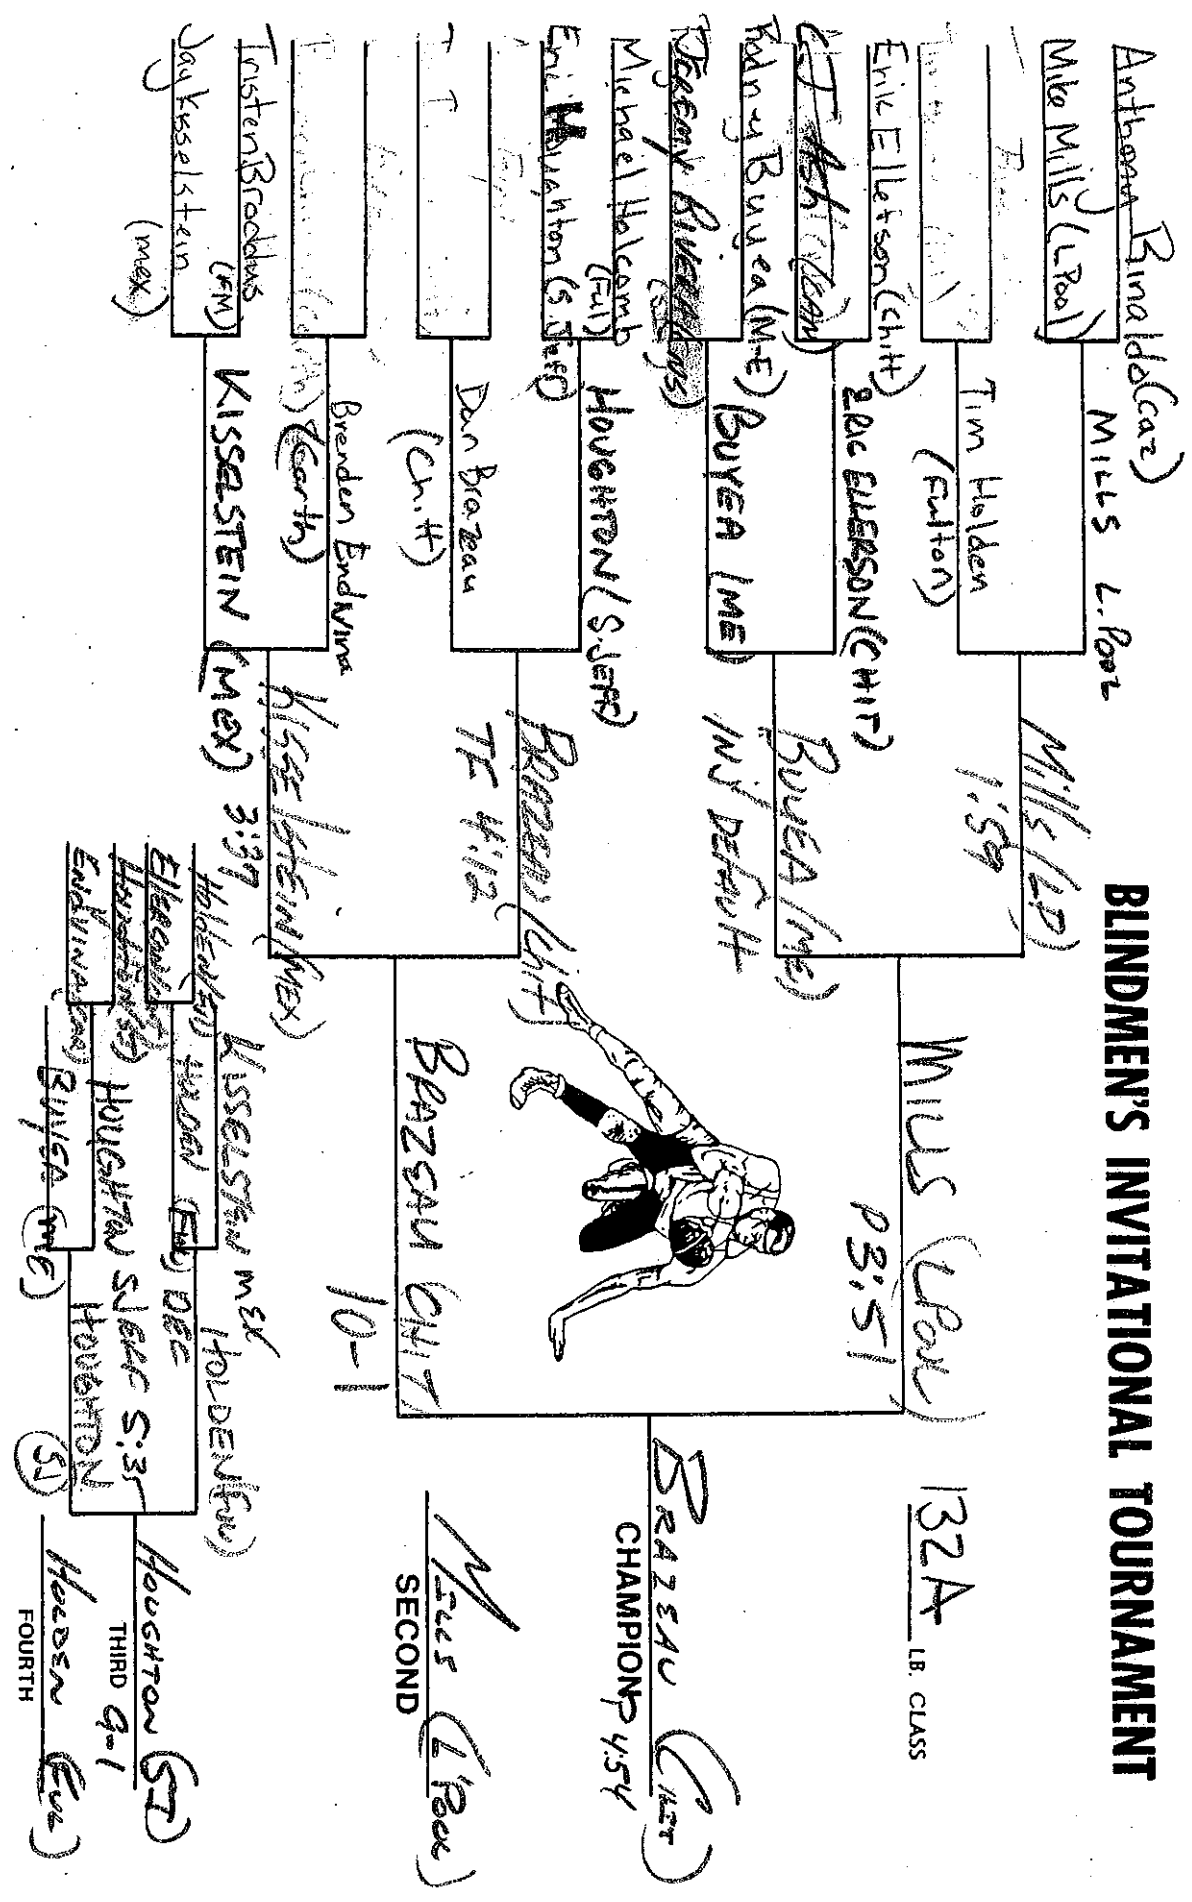 BLINDMEN'S INVITATIONAL TOURNAMENT
132A LB. CLASS
Anthony Binaldo (caz)
Mike Mills (LPool)
Erik Elletson (Chitt)
CJ Ash (CAN)
Rodney Buyea (M-E)
JEREMY RIVERA (NS)
Michael Halcomb (Ful)
Eric Houghton (S. Jeff)
Tristen Broddus (FM)
Jay Kisselstein (mex)
MILLS L. POOL
Tim Holden (Fulton)
ERIC ELLERSON (CHIT)
BUYEA (ME)
HOUGHTON (S. JEFF)
Dan Brazeau (Chitt)
Brenden Endvina (Carth)
KISSELSTEIN (MEX)
Mills (LP)
1:59
BUYEA (ME)
INJ DEFAULT
BRAZEAU (Chit)
TF 4:12
KISSELSTEIN (MEX)
3:37
MILLS (LPOOL)
P 3:51
BRAZEAU CHIT
10-1
BRAZEAU (CHIT)
CHAMPION P 4:54
MILLS (L'POOL)
SECOND
HOLDEN (FUL)
Ellerson
HOUGHTON (SJ)
ENDVINA (CAR)
KISSELSTEIN MEX
HOLDEN (FUL) DEC
HOUGHTON SJEFF 5:35
BUYEA (ME)
HOLDEN (FUL)
HOUGHTON (SJ)
HOUGHTON (SJ)
THIRD 9-1
HOLDEN (FUL)
FOURTH